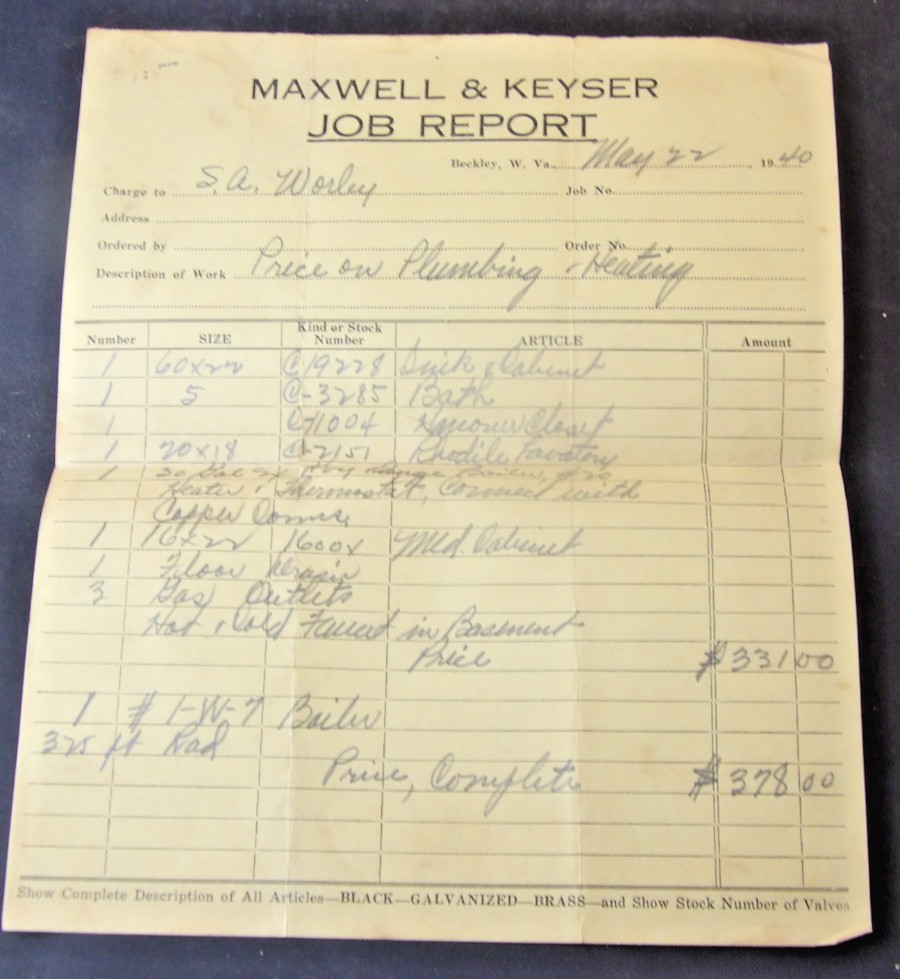 MAXWELL & KEYSER
JOB REPORT
Beckley, W. Va. May 22, 1940
Charge to S.A. Worley Job No.
Address
Ordered by Order No.
Description of Work Price on Plumbing & Heating
Number SIZE Kind or Stock Number ARTICLE Amount
1 60x22 C19228 Sink & Cabinet
1 5 C-3285 Bath
1 C71004 Closet
1 20x18 C-2151 Lavatory
1 30 Gal Range Boiler
Heater & Thermostat, Connect with
Copper
1 16x22 1600x Med. Cabinet
1 Floor Drain
3 Gas Outlets
Hot & Cold Faucet in Basement
Price $331 00
1 # 1-W-7 Boiler
325 ft Rad
Price, Complete $378 00
Show Complete Description of All Articles—BLACK—GALVANIZED—BRASS—and Show Stock Number of Valves